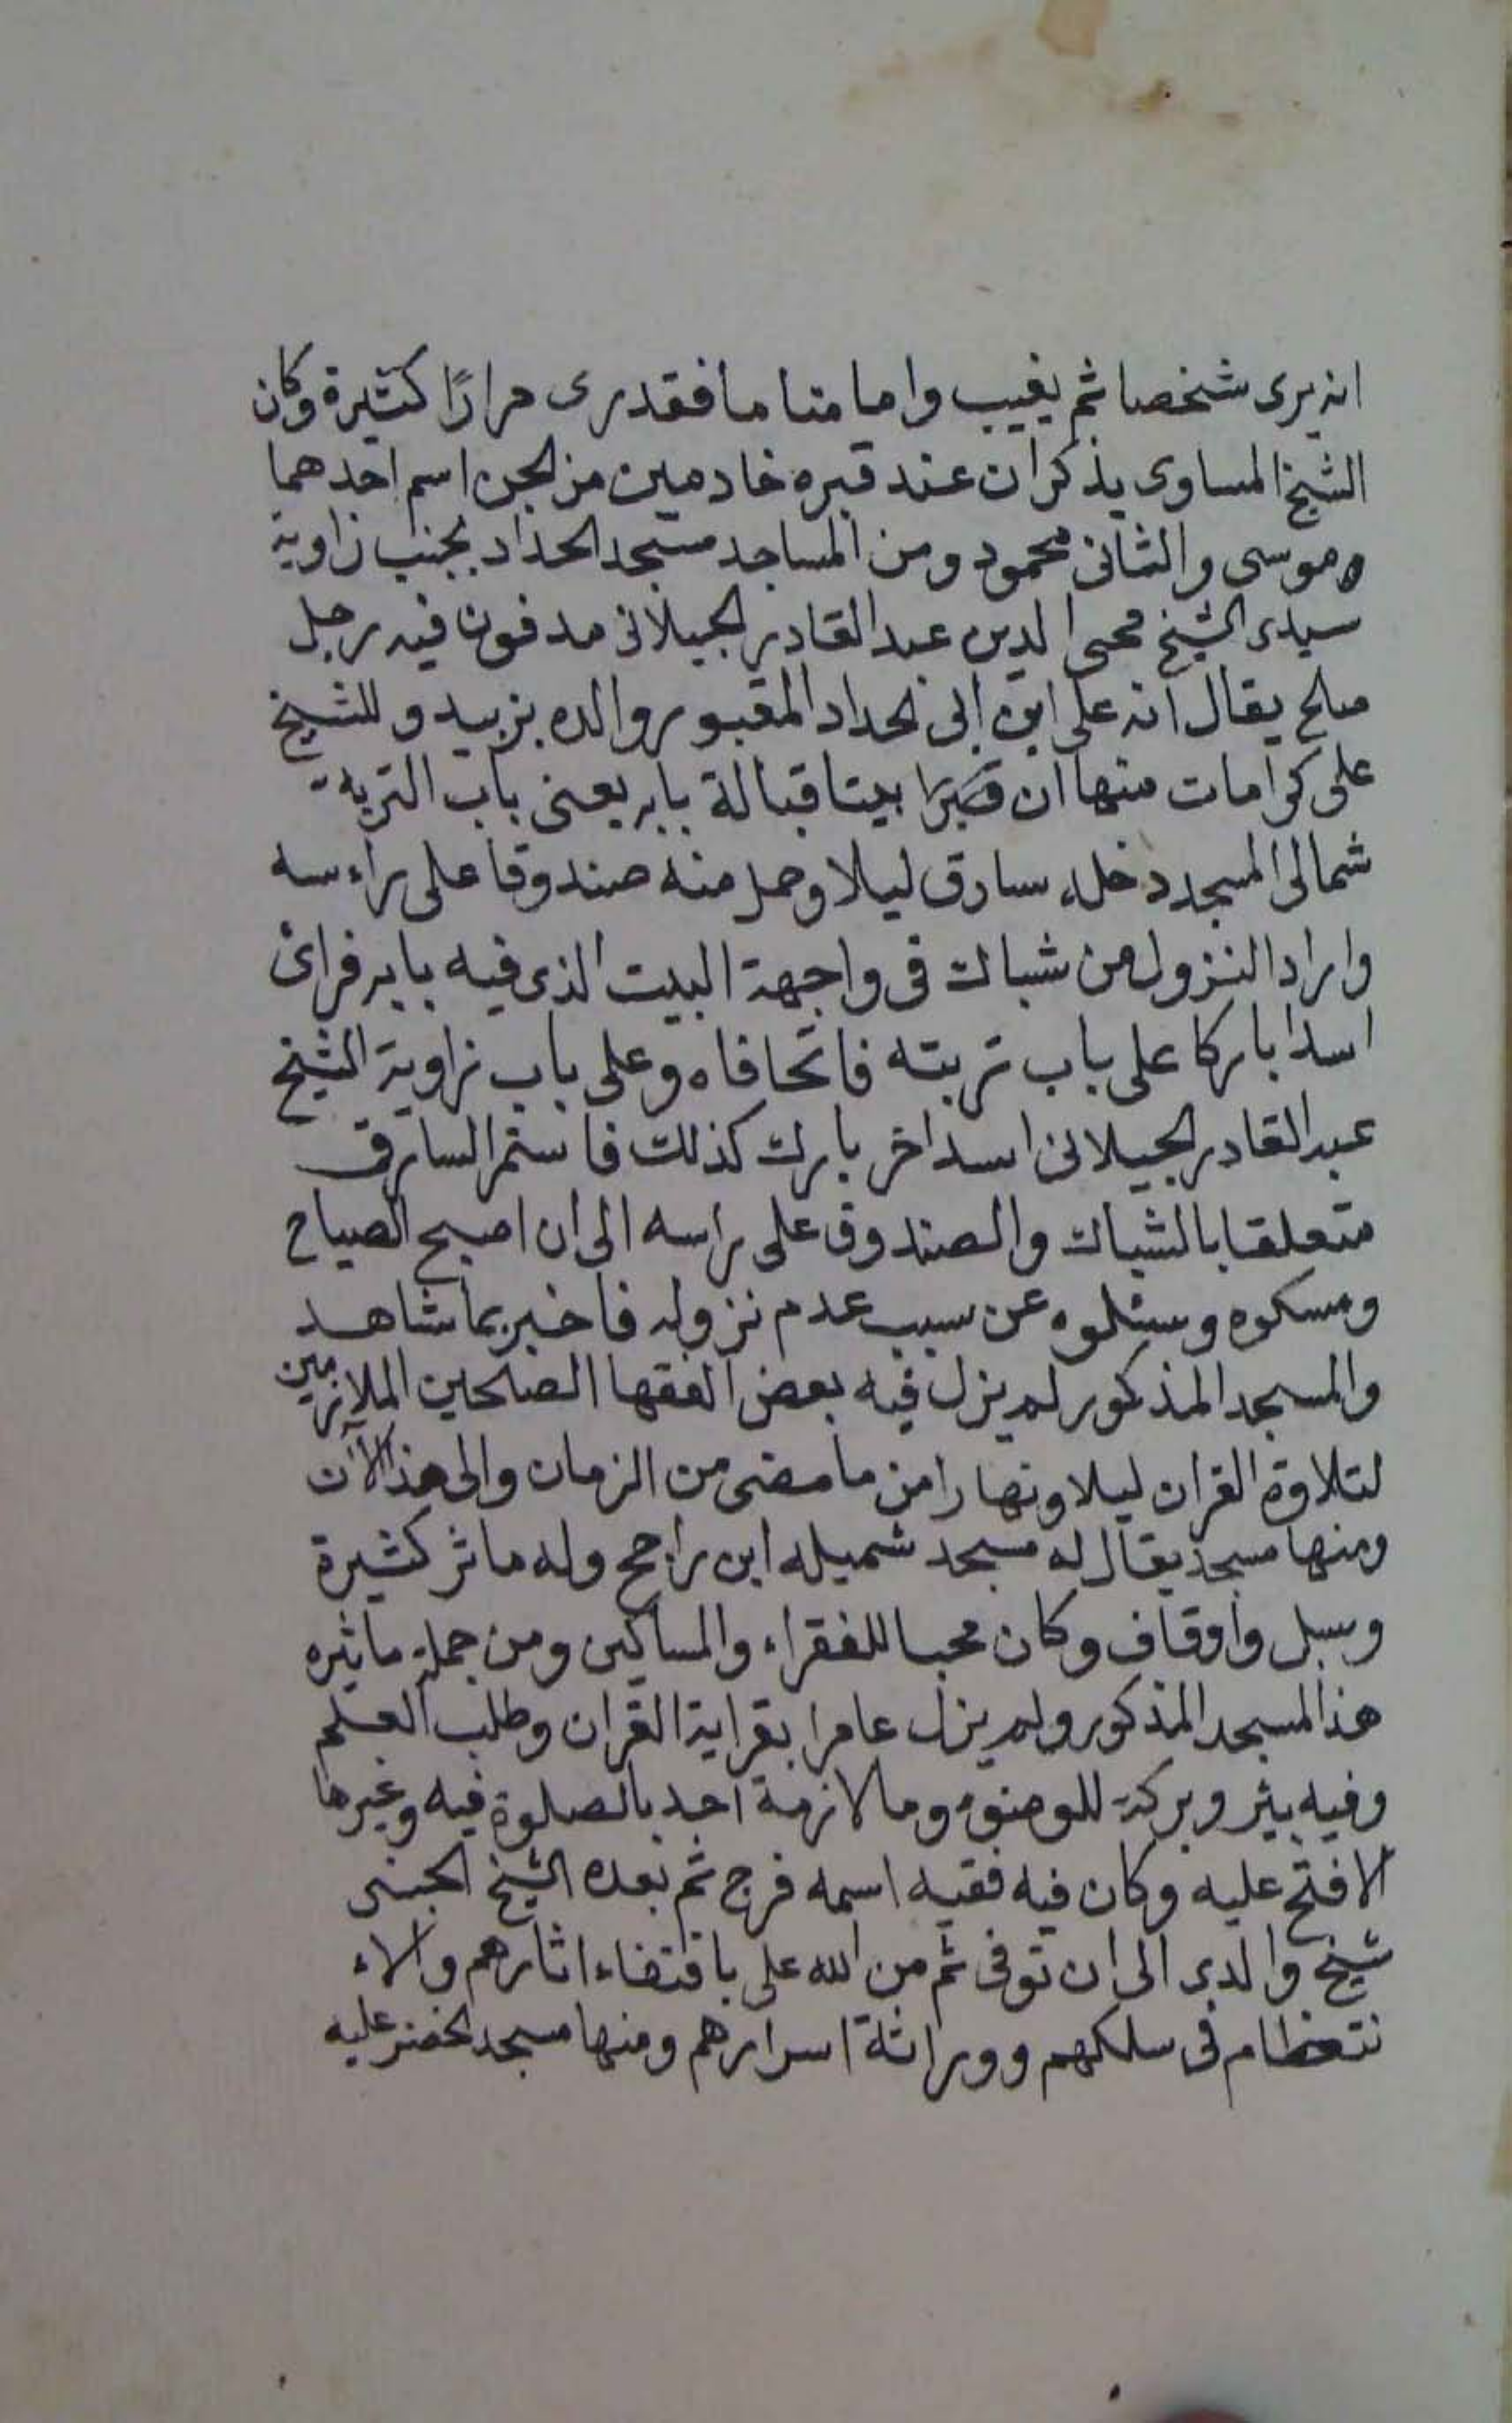 انه يرى شخصا ثم يغيب واما مناما فقد رى مرارًا كثيرة وكان
الشيخ المساوى يذكر ان عند قبره خادمين من الجن اسم احدهما
موسى والثانى محمود ومن المساجد مسجد الحداد بجنب زاوية
سيدى الشيخ محى الدين عبد القادر الجيلانى مدفون فيه رجل
صلح يقال انه على ابن ابى الحداد المقبور والده بزبيد وللشيخ
على كرامات منها ان بيتا قبالة بابه يعنى باب التربة
شمالى المسجد دخله سارق ليلا وحمل منه صندوقا على راءسه
واراد النزول من شباك فى واجهة البيت الذى فيه بابه فراى
اسدا باركا على باب تربته فاتحا فاه وعلى باب زاوية الشيخ
عبد القادر الجيلانى اسدا خر بارك كذلك فاستمر السارق
متعلقا بالشباك والصندوق على راسه الى ان اصبح الصباح
ومسكوه وسئلوه عن سبب عدم نزوله فاخبر بما شاهد
والمسجد المذكور لم يزل فيه بعض الفقها الصلحين الملازمين
لتلاوة القران ليلا ونهارا من ما مضى من الزمان والى هذا الآن
ومنها مسجد يقال له مسجد شميله ابن راجح وله ماثر كثيرة
وسبل واوقاف وكان محبا للفقراء والمساكين ومن جملة ماثره
هذا المسجد المذكور ولم يزل عامرا بقراية القران وطلب العلم
وفيه بئر وبركة للوضوء وما لازمة احد بالصلوة فيه وغيرها
الا فتح عليه وكان فيه فقيه اسمه فرج ثم بعده الشيخ
شيخ والدى الى ان توفى ثم من الله على باقتفاء اثارهم والاء
نتظام فى سلكهم ووراثة اسرارهم ومنها مسجد الخضر عليه